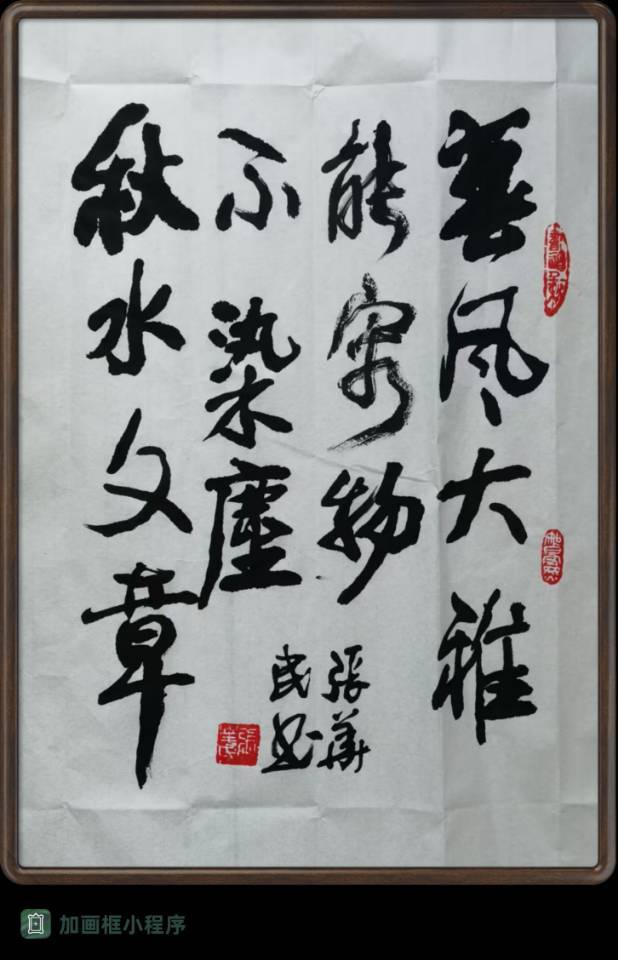 春风大雅
能容物
秋水文章
不染塵
張華
民书
加画框小程序